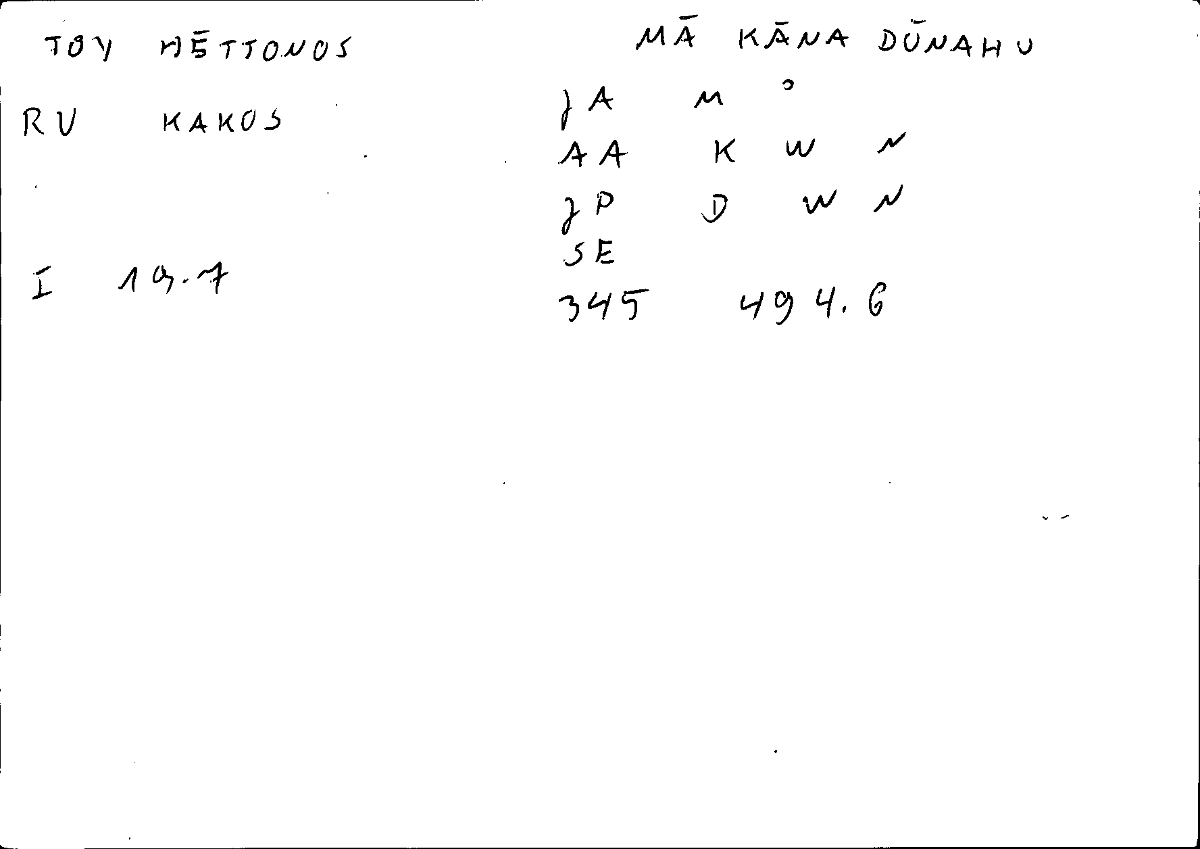 TOY HĒTTONOS MĀ KĀNA DŪNAHU
ȷA M ʾ
RU KAKOS
AA K W N
ȷP D W N
SE
I 19.7 345 494.6